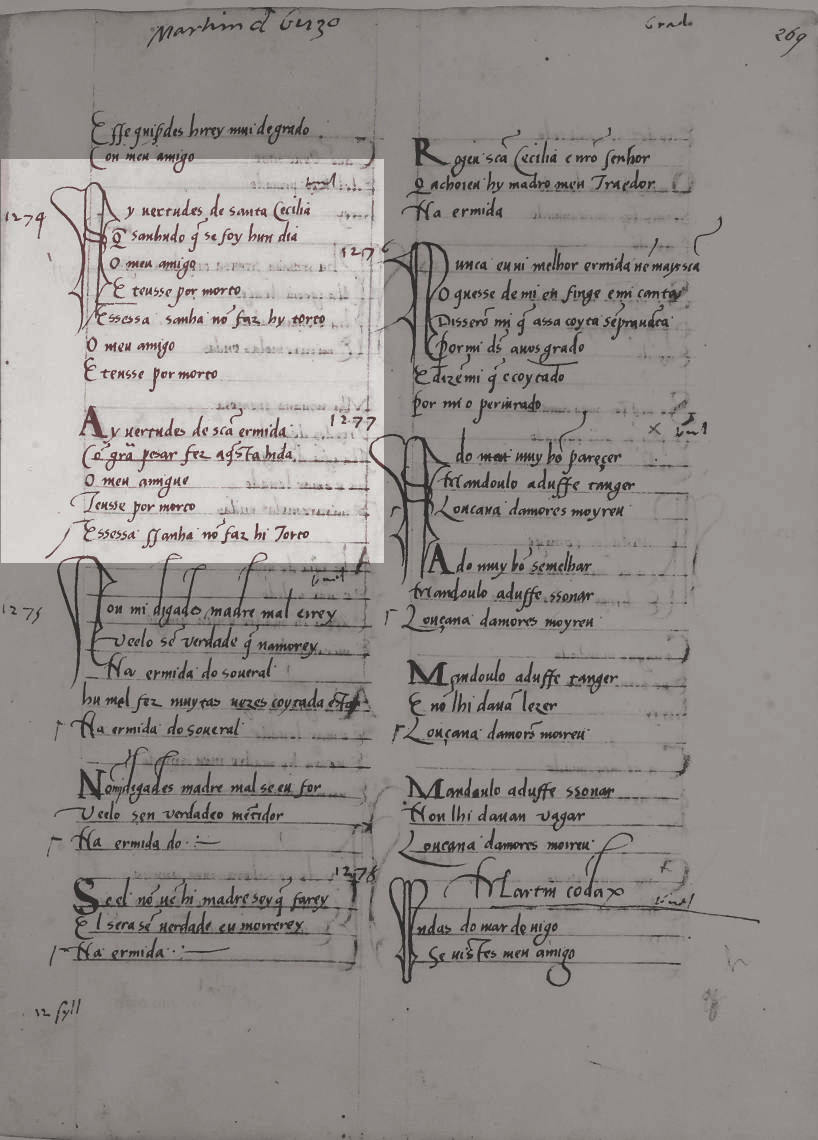 Martin d Gizo
Grado
269
Esse quisdes hirrey mui de grado
Con meu amigo
tornel
1274
Ay uertudes de santa Cecilia
Q̄ sanhudo q̄ se foy hun dia
O meu amigo
E tensse por morto
Essessa sanha nō faz hy torto
O meu amigo
E tensse por morto
Ay uertudes de scā ermida
Cō grā pesar fez aq̄sta hida
O meu amigue
Tensse por morto
Essessa ssanha nō faz hi Torto
tornel
1275
Non mi digades madre mal eirey
Veelo sē verdade q̄ namorey
Na ermida do soueral
hu mel fez muytas uezes coytada estar
Na ermida do soueral
Nō mi digades madre mal se eu for
Veelo sen verdadeo mētidor
Na ermida do
Se el nō uē hi madre sey q̄ farey
El sera sē uerdade eu morrerey
Na ermida
12 syll
Roguu scā Cecilia e nr̄o senhor
Q̄ acholeu hy madro meu Traedor
Na ermida
1276
Nunca eu ui melhor ermida nē mays scā
O quesse de mi en finge e mi canta
Disserō mi q̄ assa coyta sēpr auāta
Por mi ds̄ a uos grado
E dizē mi q̄ e coytado
Por mi o periurado
1277
tornel
A do muy bō pareçer
Mandoulo aduffe tanger
Louçana damores moyreu
A do muy bō semelhar
Mandoulo aduffe ssonar
Louçana damores moyreu
Mandoulo aduffe tanger
E nō lhi dauā lezer
Louçana damors̄ moireu
Mandoulo aduffe ssonar
Non lhi dauan uagar
Louçana damores moireu
1278
Martin codax
tornel
Ondas do mar de uigo
Se uistes meu amigo